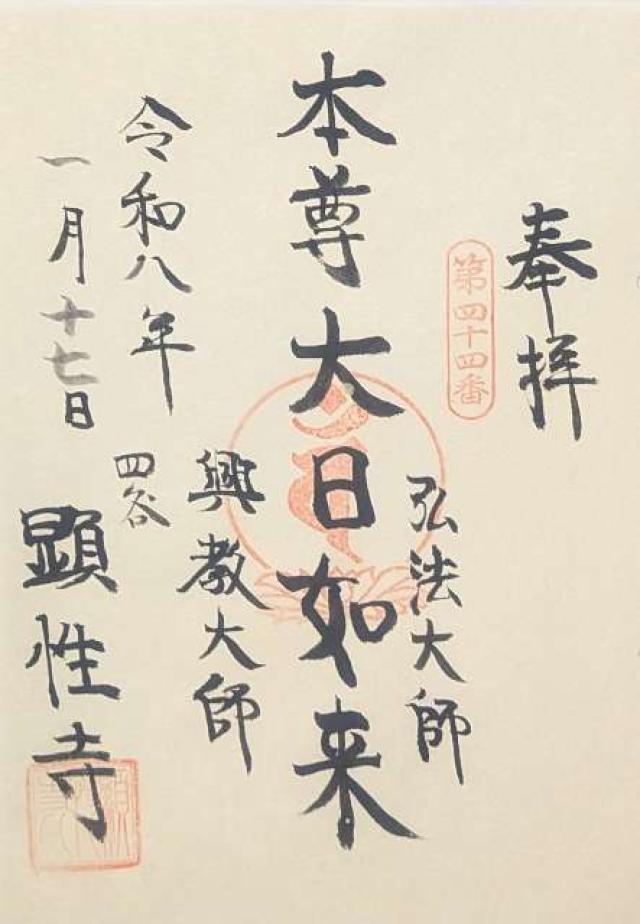 奉拝
第四十四番
弘法大師
本尊大日如来
興教大師
令和八年
一月十七日
四谷
顕性寺